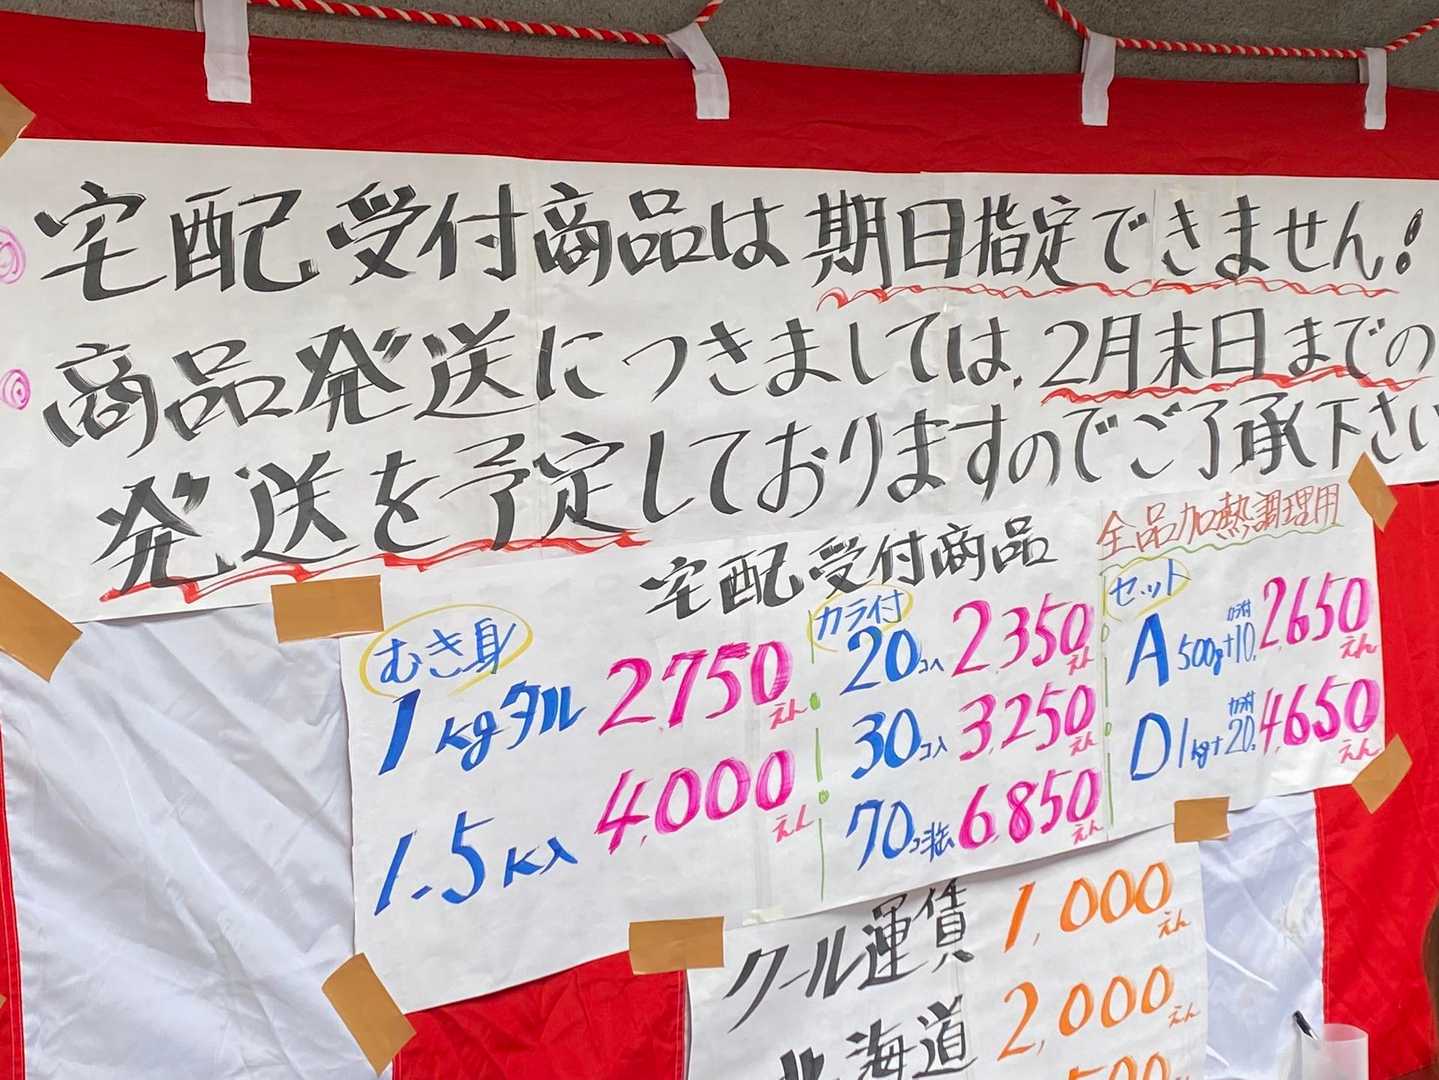 宅配受付商品は期日指定できません!
商品発送につきましては、2月末日までの
発送を予定しておりますのでご了承下さい
宅配受付商品
全品加熱調理用
むき身
1kgタル 2,750えん
1.5K入 4,000えん
カラ付
20コ入 2,350えん
30コ入 3,250えん
70コ 6,850えん
セット
A 500g+カラ付10コ 2,650えん
D 1kg+カラ付20コ 4,650えん
クール運賃 1,000えん
北海道 2,000えん
500